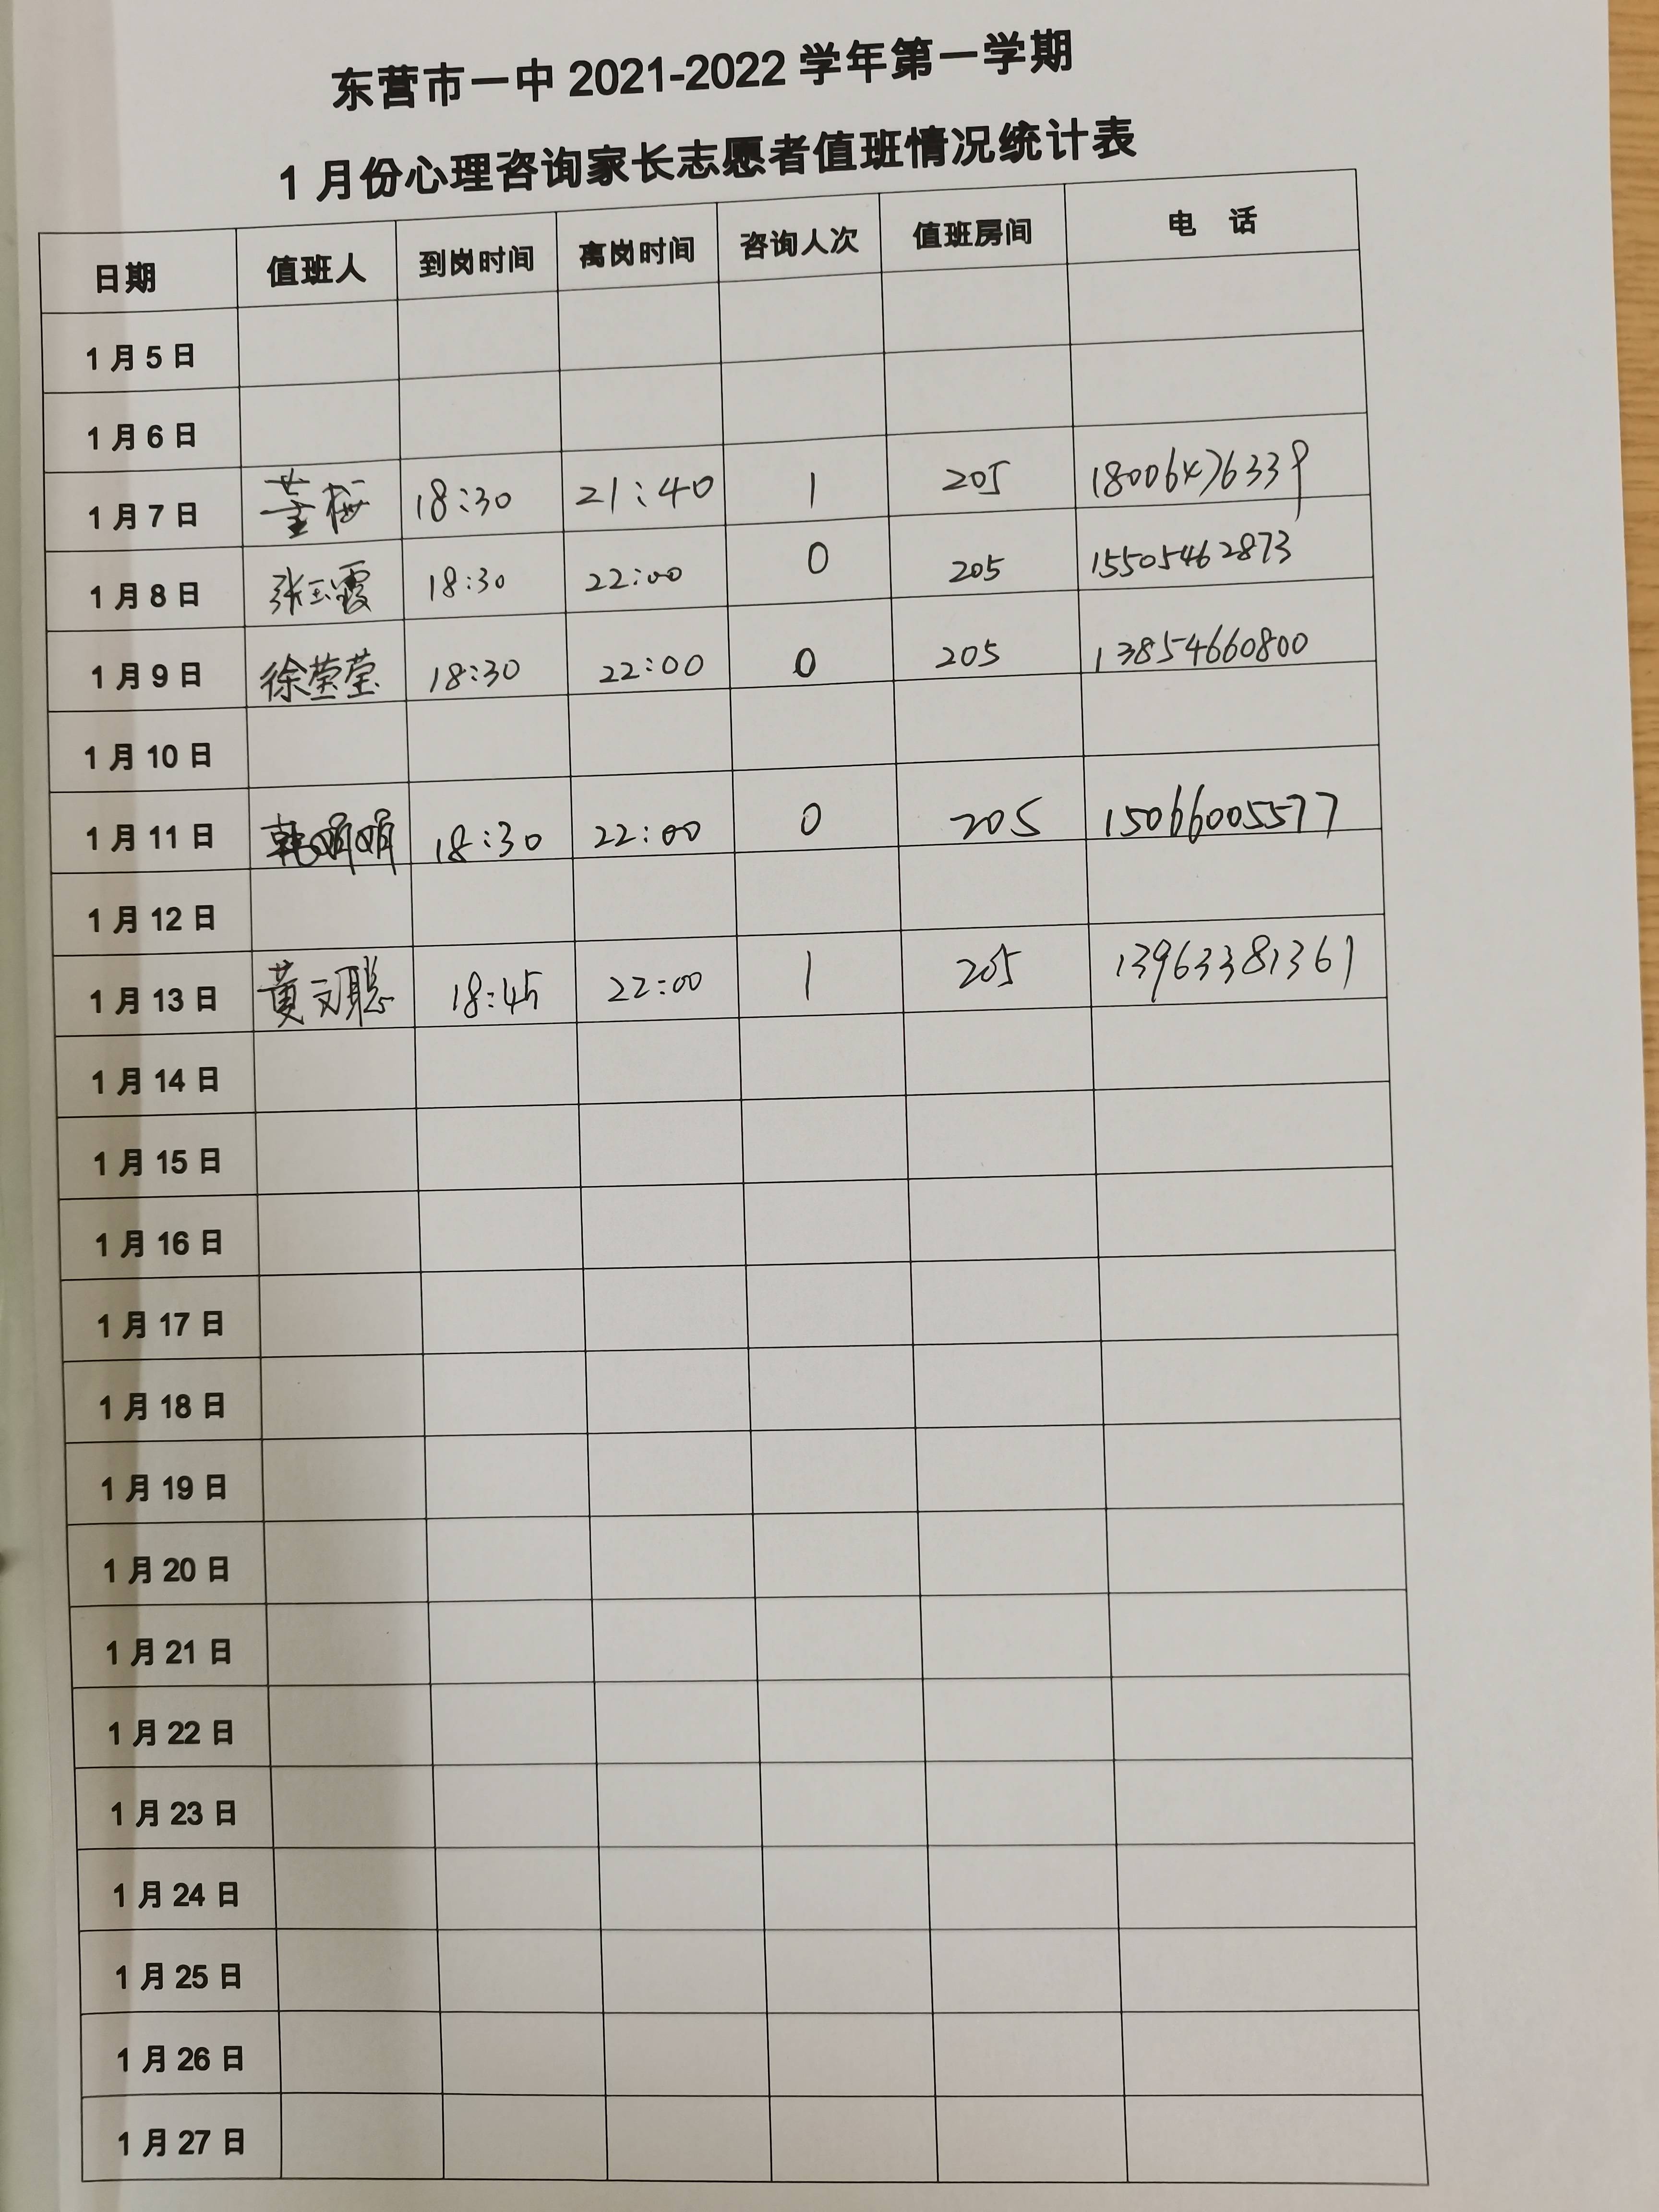 东营市一中 2021-2022 学年第一学期
1 月份心理咨询家长志愿者值班情况统计表
日期 值班人 到岗时间 离岗时间 咨询人次 值班房间 电 话
1 月 5 日
1 月 6 日
1 月 7 日 董梅 18:30 21:40 1 205 18006476339
1 月 8 日 张玉霞 18:30 22:00 0 205 15505462873
1 月 9 日 徐莹莹 18:30 22:00 0 205 13854660800
1 月 10 日
1 月 11 日 韩娟娟 18:30 22:00 0 205 15066005577
1 月 12 日
1 月 13 日 黄文聪 18:45 22:00 1 205 13963381361
1 月 14 日
1 月 15 日
1 月 16 日
1 月 17 日
1 月 18 日
1 月 19 日
1 月 20 日
1 月 21 日
1 月 22 日
1 月 23 日
1 月 24 日
1 月 25 日
1 月 26 日
1 月 27 日